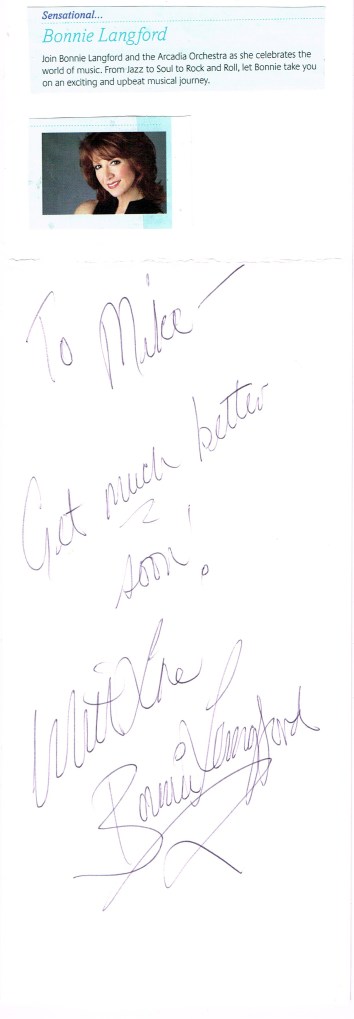 Sensational...
Bonnie Langford
Join Bonnie Langford and the Arcadia Orchestra as she celebrates the
world of music. From Jazz to Soul to Rock and Roll, let Bonnie take you
on an exciting and upbeat musical journey.
To Mike —
Get much better
soon!
With Love
Bonnie Langford